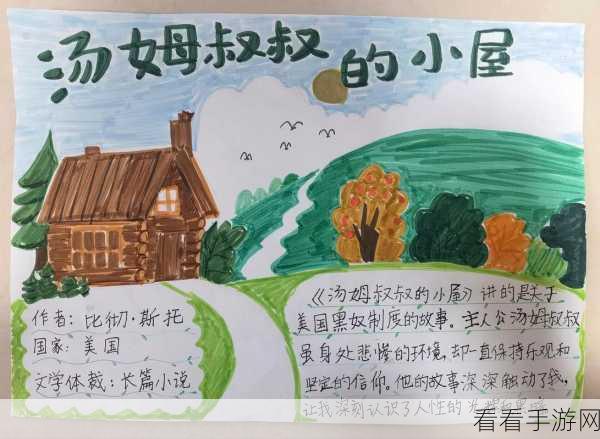 汤姆叔叔的小屋
作者：比彻·斯托
国家：美国
文学体裁：长篇小说
《汤姆叔叔的小屋》讲的是关于
美国黑奴制度的故事。主人公汤姆叔叔
虽身处悲惨的环境，却一直保持乐观和
坚定的信仰。他的故事深深触动了我，
让我深刻认识了人性的光辉和黑暗
看看手游网